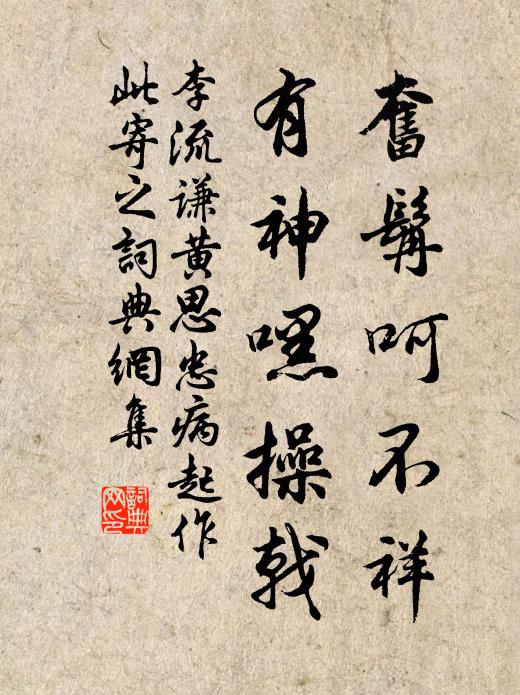 奮髯呵不祥
有神嘿操戟
李流謙黃思忠病起作
此寄之詞典網集
詞典
网印